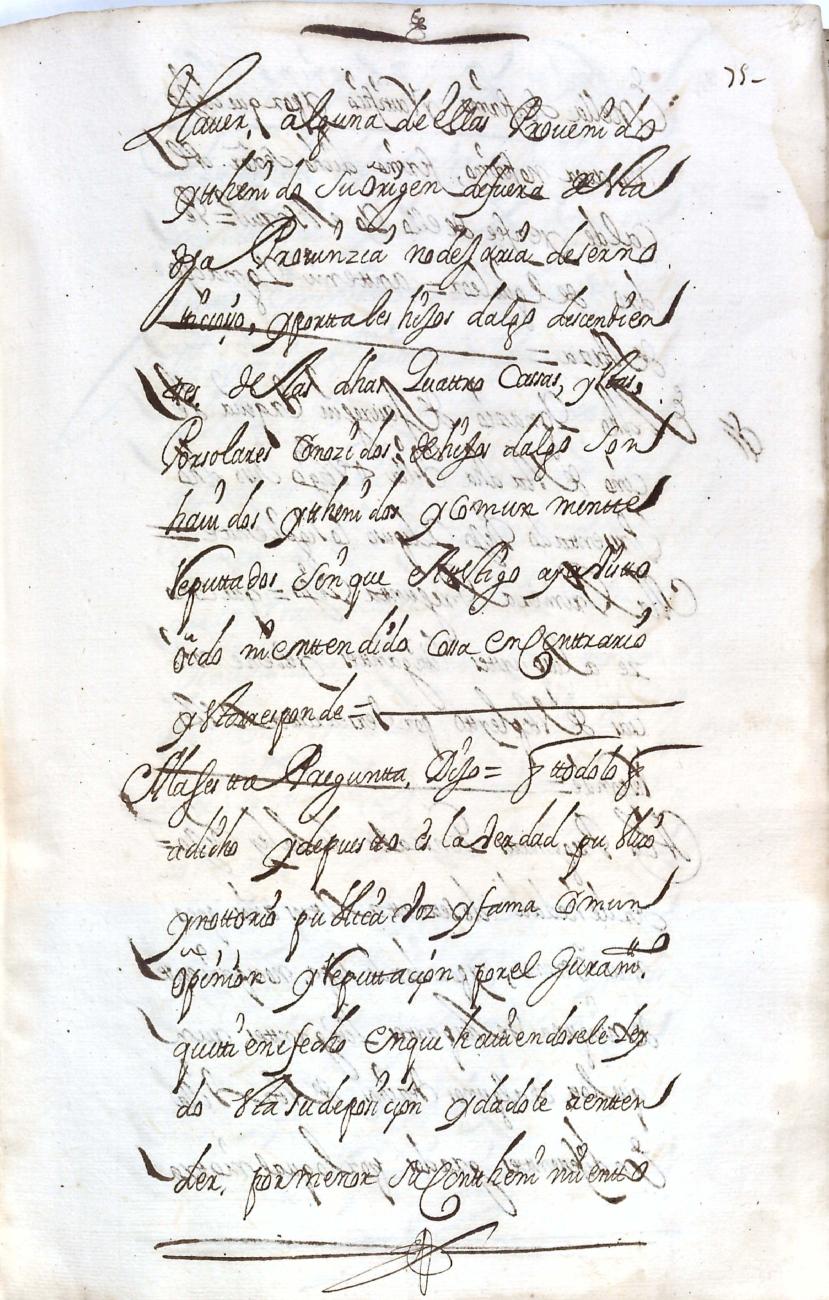 75-
Haver, alguna de ellas Provenido
ytthenido su origen defuera de
Provinzia no de
yportales hijos dalgo descendien
tes, de las dhas Quattro Cassas, y
Porsolares Conozidos de hijos dalgo son
havidos ytthenidos y Comun mentte
Reputtados sin que el testigo aya
oido ni enttendido Cosa en Conttrario
y esto responde =
A la sesta Pregunta, Dijo = q ttodo lo q
a dicho y depuesto es la verdad publico
ynottorio publica voz y fama Comun
opinion y Reputtacion por el Juramto.
que tiene fecho en que haviendosele Ley
do esta su deposicion y dadole aentten
der, por menor su Conttheni mientto